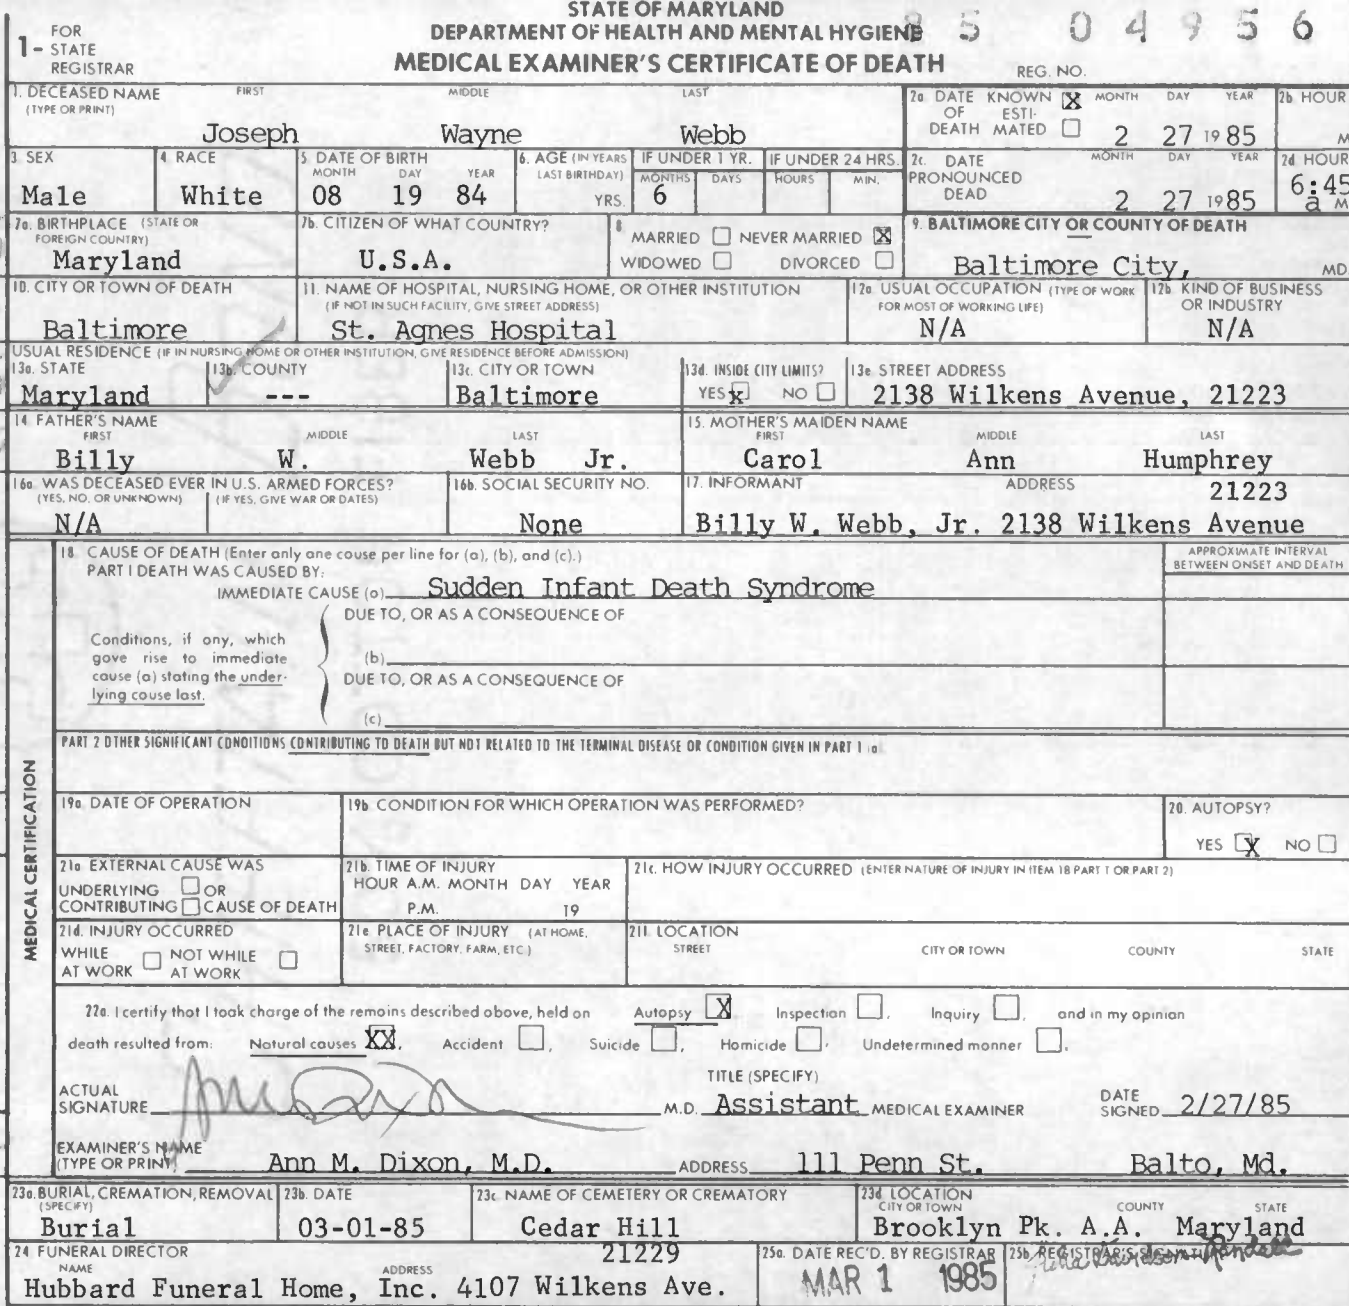 STATE OF MARYLAND
DEPARTMENT OF HEALTH AND MENTAL HYGIENE
85 04956
1- FOR STATE REGISTRAR
MEDICAL EXAMINER'S CERTIFICATE OF DEATH
REG. NO.
1. DECEASED NAME (TYPE OR PRINT) FIRST MIDDLE LAST
Joseph Wayne Webb
2a. DATE OF DEATH KNOWN X ESTIMATED MONTH DAY YEAR
2 27 1985
2b. HOUR
M
3. SEX
Male
4. RACE
White
5. DATE OF BIRTH MONTH DAY YEAR
08 19 84
6. AGE (IN YEARS LAST BIRTHDAY)
YRS.
IF UNDER 1 YR. MONTHS DAYS
6
IF UNDER 24 HRS. HOURS MIN.
2c. DATE PRONOUNCED DEAD MONTH DAY YEAR
2 27 1985
2d. HOUR
6:45
a M
7a. BIRTHPLACE (STATE OR FOREIGN COUNTRY)
Maryland
7b. CITIZEN OF WHAT COUNTRY?
U.S.A.
8. MARRIED NEVER MARRIED X
WIDOWED DIVORCED
9. BALTIMORE CITY OR COUNTY OF DEATH
Baltimore City, MD.
10. CITY OR TOWN OF DEATH
Baltimore
11. NAME OF HOSPITAL, NURSING HOME, OR OTHER INSTITUTION
(IF NOT IN SUCH FACILITY, GIVE STREET ADDRESS)
St. Agnes Hospital
12a. USUAL OCCUPATION (TYPE OF WORK FOR MOST OF WORKING LIFE)
N/A
12b. KIND OF BUSINESS OR INDUSTRY
N/A
USUAL RESIDENCE (IF IN NURSING HOME OR OTHER INSTITUTION, GIVE RESIDENCE BEFORE ADMISSION)
13a. STATE
Maryland
13b. COUNTY
---
13c. CITY OR TOWN
Baltimore
13d. INSIDE CITY LIMITS?
YES x NO
13e. STREET ADDRESS
2138 Wilkens Avenue, 21223
14. FATHER'S NAME
FIRST MIDDLE LAST
Billy W. Webb Jr.
15. MOTHER'S MAIDEN NAME
FIRST MIDDLE LAST
Carol Ann Humphrey
16a. WAS DECEASED EVER IN U.S. ARMED FORCES?
(YES, NO, OR UNKNOWN) (IF YES, GIVE WAR OR DATES)
N/A
16b. SOCIAL SECURITY NO.
None
17. INFORMANT ADDRESS
21223
Billy W. Webb, Jr. 2138 Wilkens Avenue
MEDICAL CERTIFICATION
18. CAUSE OF DEATH (Enter only one cause per line for (a), (b), and (c).)
PART I DEATH WAS CAUSED BY:
IMMEDIATE CAUSE (a) Sudden Infant Death Syndrome
APPROXIMATE INTERVAL BETWEEN ONSET AND DEATH
Conditions, if any, which gave rise to immediate cause (a) stating the underlying cause last.
DUE TO, OR AS A CONSEQUENCE OF
(b)
DUE TO, OR AS A CONSEQUENCE OF
(c)
PART 2 OTHER SIGNIFICANT CONDITIONS CONTRIBUTING TO DEATH BUT NOT RELATED TO THE TERMINAL DISEASE OR CONDITION GIVEN IN PART 1 (a)
19a. DATE OF OPERATION
19b. CONDITION FOR WHICH OPERATION WAS PERFORMED?
20. AUTOPSY?
YES X NO
21a. EXTERNAL CAUSE WAS
UNDERLYING OR
CONTRIBUTING CAUSE OF DEATH
21b. TIME OF INJURY
HOUR A.M. MONTH DAY YEAR
P.M. 19
21c. HOW INJURY OCCURRED (ENTER NATURE OF INJURY IN ITEM 18 PART 1 OR PART 2)
21d. INJURY OCCURRED
WHILE AT WORK NOT WHILE AT WORK
21e. PLACE OF INJURY (AT HOME, STREET, FACTORY, FARM, ETC.)
21f. LOCATION
STREET CITY OR TOWN COUNTY STATE
22a. I certify that I took charge of the remains described above, held on Autopsy X Inspection , Inquiry , and in my opinion
death resulted from: Natural causes XX, Accident , Suicide , Homicide , Undetermined manner .
TITLE (SPECIFY)
ACTUAL SIGNATURE Ann M Dixon M.D. Assistant MEDICAL EXAMINER DATE SIGNED 2/27/85
EXAMINER'S NAME (TYPE OR PRINT) Ann M. Dixon, M.D. ADDRESS 111 Penn St. Balto, Md.
23a. BURIAL, CREMATION, REMOVAL (SPECIFY)
Burial
23b. DATE
03-01-85
23c. NAME OF CEMETERY OR CREMATORY
Cedar Hill
23d. LOCATION
CITY OR TOWN COUNTY STATE
Brooklyn Pk. A.A. Maryland
24. FUNERAL DIRECTOR
NAME ADDRESS
21229
Hubbard Funeral Home, Inc. 4107 Wilkens Ave.
25a. DATE REC'D. BY REGISTRAR
MAR 1 1985
25b. REGISTRAR'S SIGNATURE
Davidson Randall